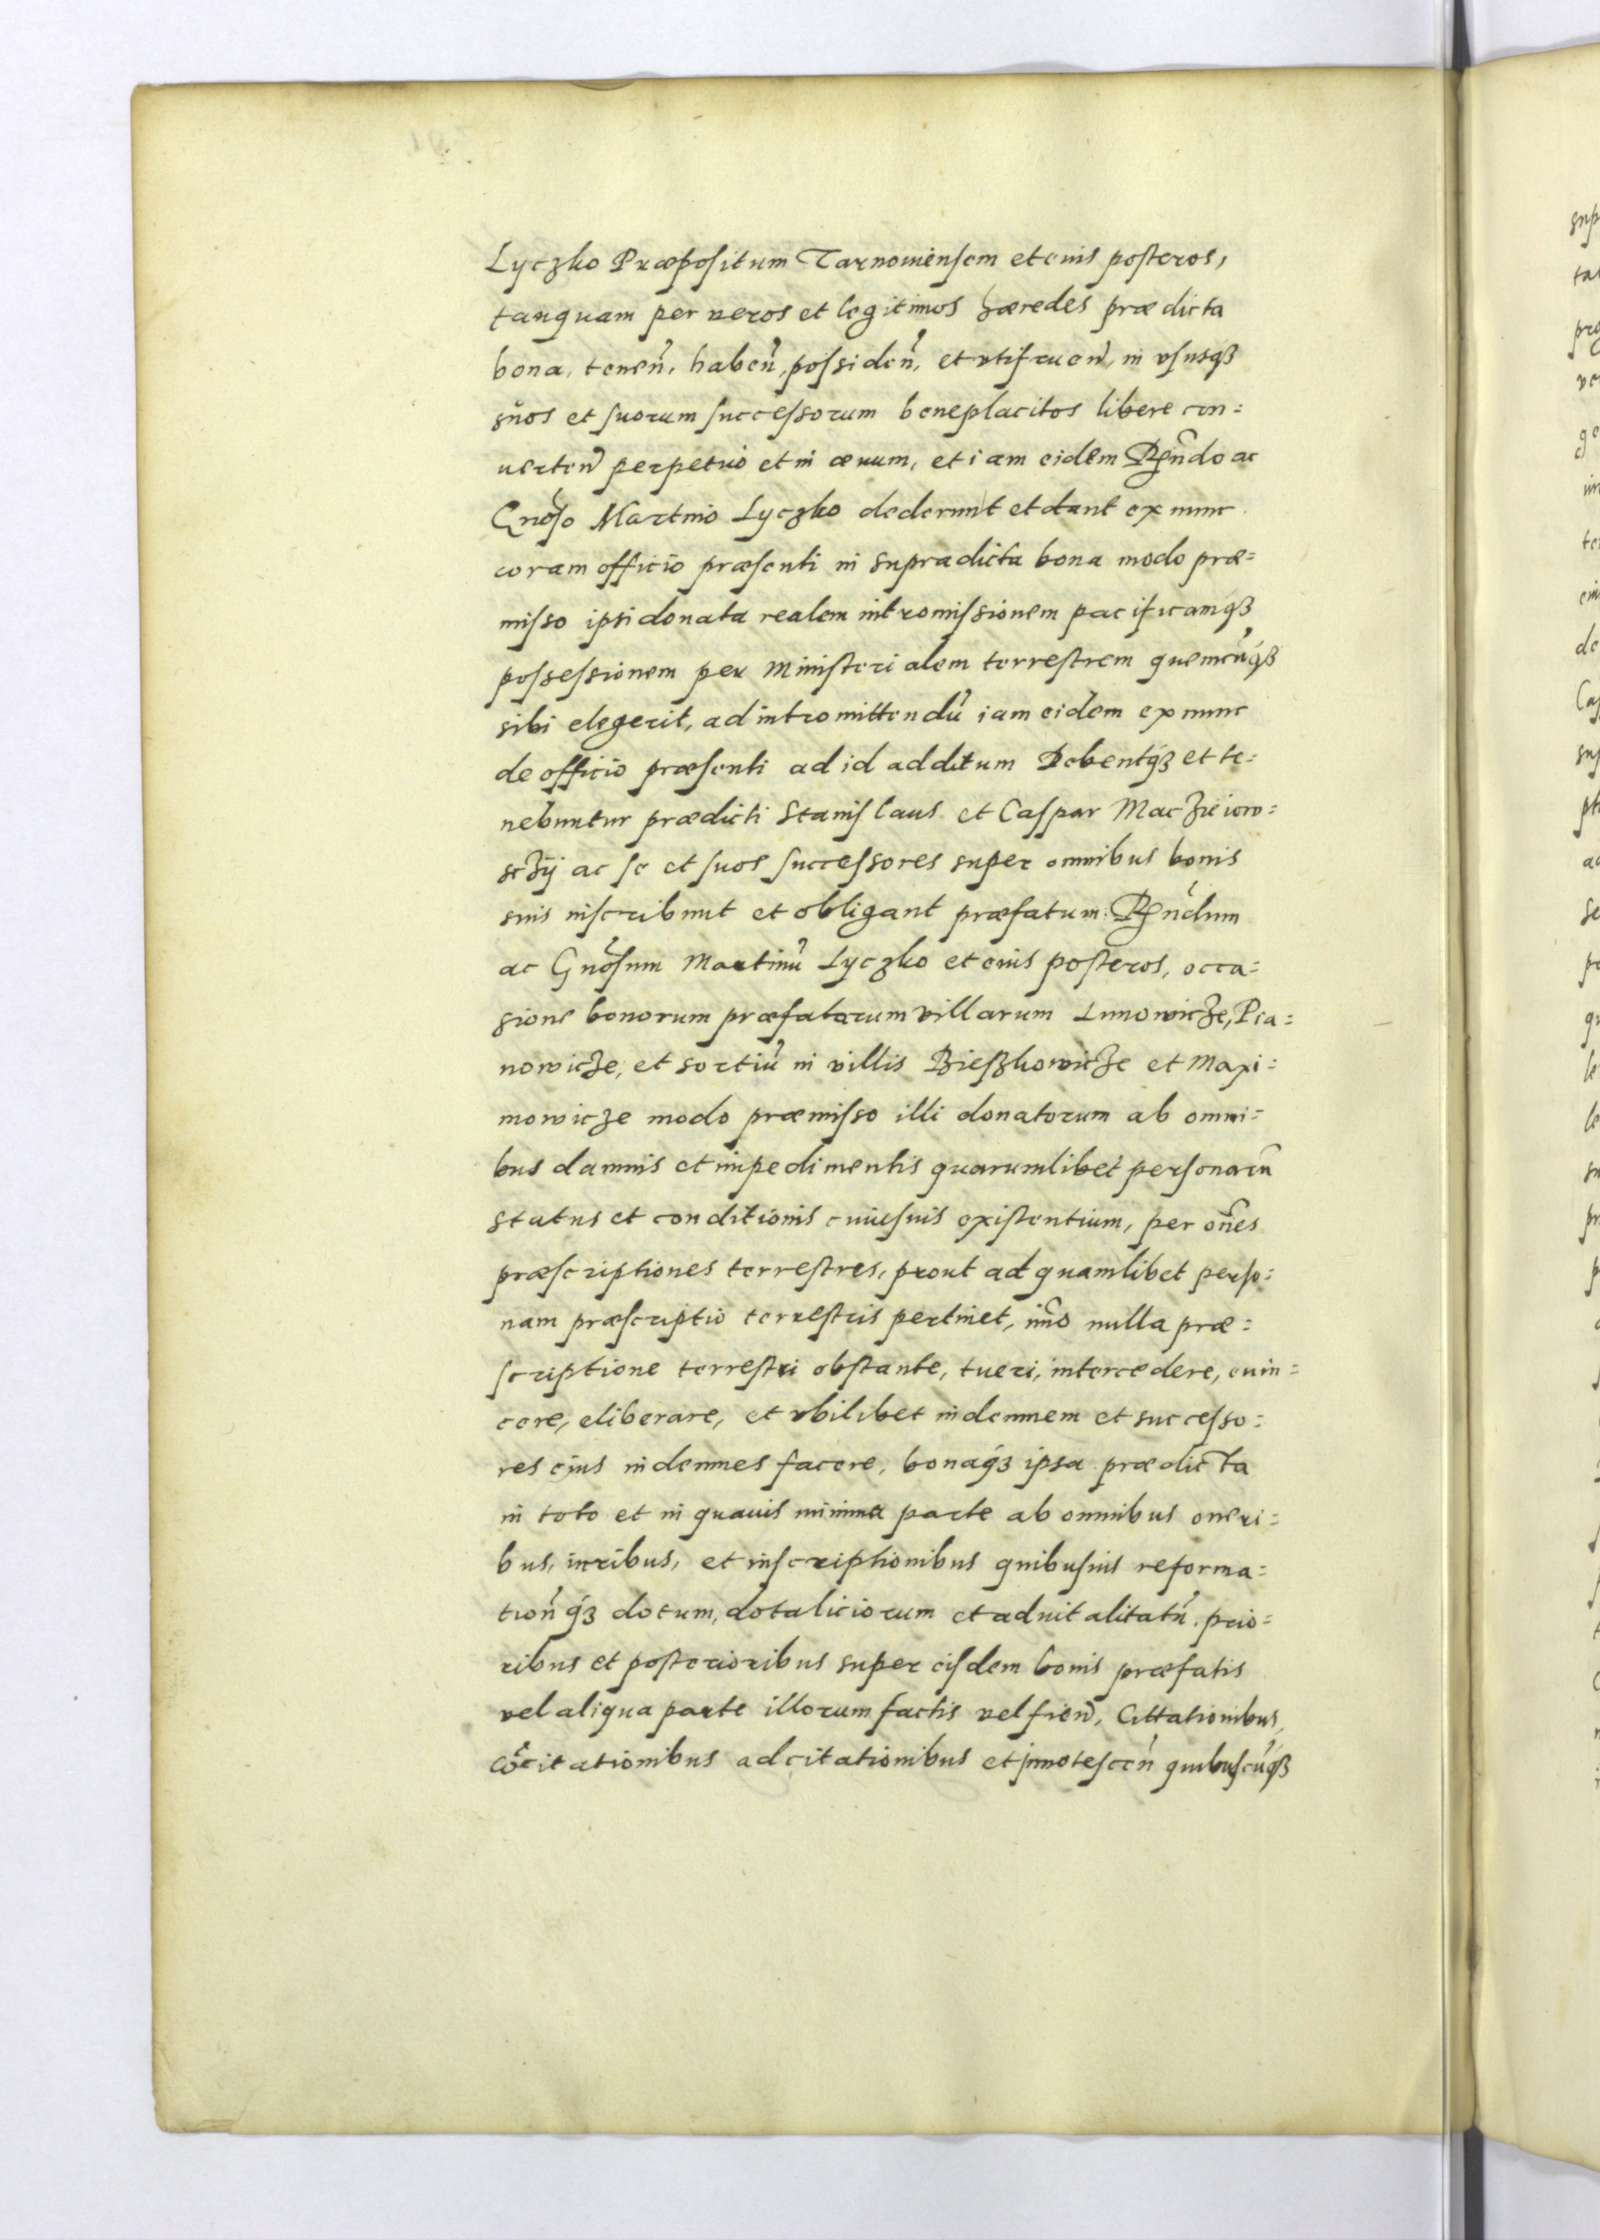 Lyczko Præpositum Tarnouiensem et eius posteros,
tanquam per ueros et legitimos hæredes prædicta
bona, tenen̄, haben̄, possiden̄, et vtifruen̄, in vsusq₃
suos et suorum successorum beneplacitos libere con=
uerten̄ perpetuo et in æuum, et iam eidem Rn̄do ac
Gn̄oso Martino Lyczko dederunt et dant ex nunc
coram officio præsenti in supradicta bona modo præ=
misso ipsi donata realem intromissionem pacificamq₃
possessionem per Ministerialem terrestrem quemcūq₃
sibi elegerit, ad intromittendū iam eidem ex nunc
de officio præsenti ad id additum Debentq₃ et te=
nebuntur prædicti Stanislaus et Caspar Maczieiow=
sczÿ ac se et suos successores super omnibus bonis
suis inscribunt et obligant præfatum Rn̄dum
ac Gn̄osum Martinū Lyczko et eius posteros, occa=
sione bonorum præfatarum villarum Lunowicze, Pia=
nowicze, et sortiū in villis Bieszkowicze et Maxi=
mowicze modo præmisso illi donatorum ab omni=
bus damnis et impedimentis quarumlibet personarū
status et conditionis cuiusuis existentium, per ōnes
præscriptiones terrestres, prout ad quamlibet perso=
nam præscriptio terrestris pertinet, im̄o nulla præ=
scriptione terrestri obstante, tueri, intercedere, euin=
cere, eliberare, et vbilibet indemnem et successo=
res ejus indemnes facere, bonaq₃ ipsa prædicta
in toto et in quauis minima parte ab omnibus oneri=
bus, iuribus, et inscriptionibus quibusuis reforma=
tion̄q₃ dotum, dotaliciorum et aduitalitatū prio=
ribus et posterioribus super eisdem bonis præfatis
vel aliqua parte illorum factis vel fien̄, Cittationibus,
cōcitationibus adcitationibus et innotescen̄ quibuscūq₃